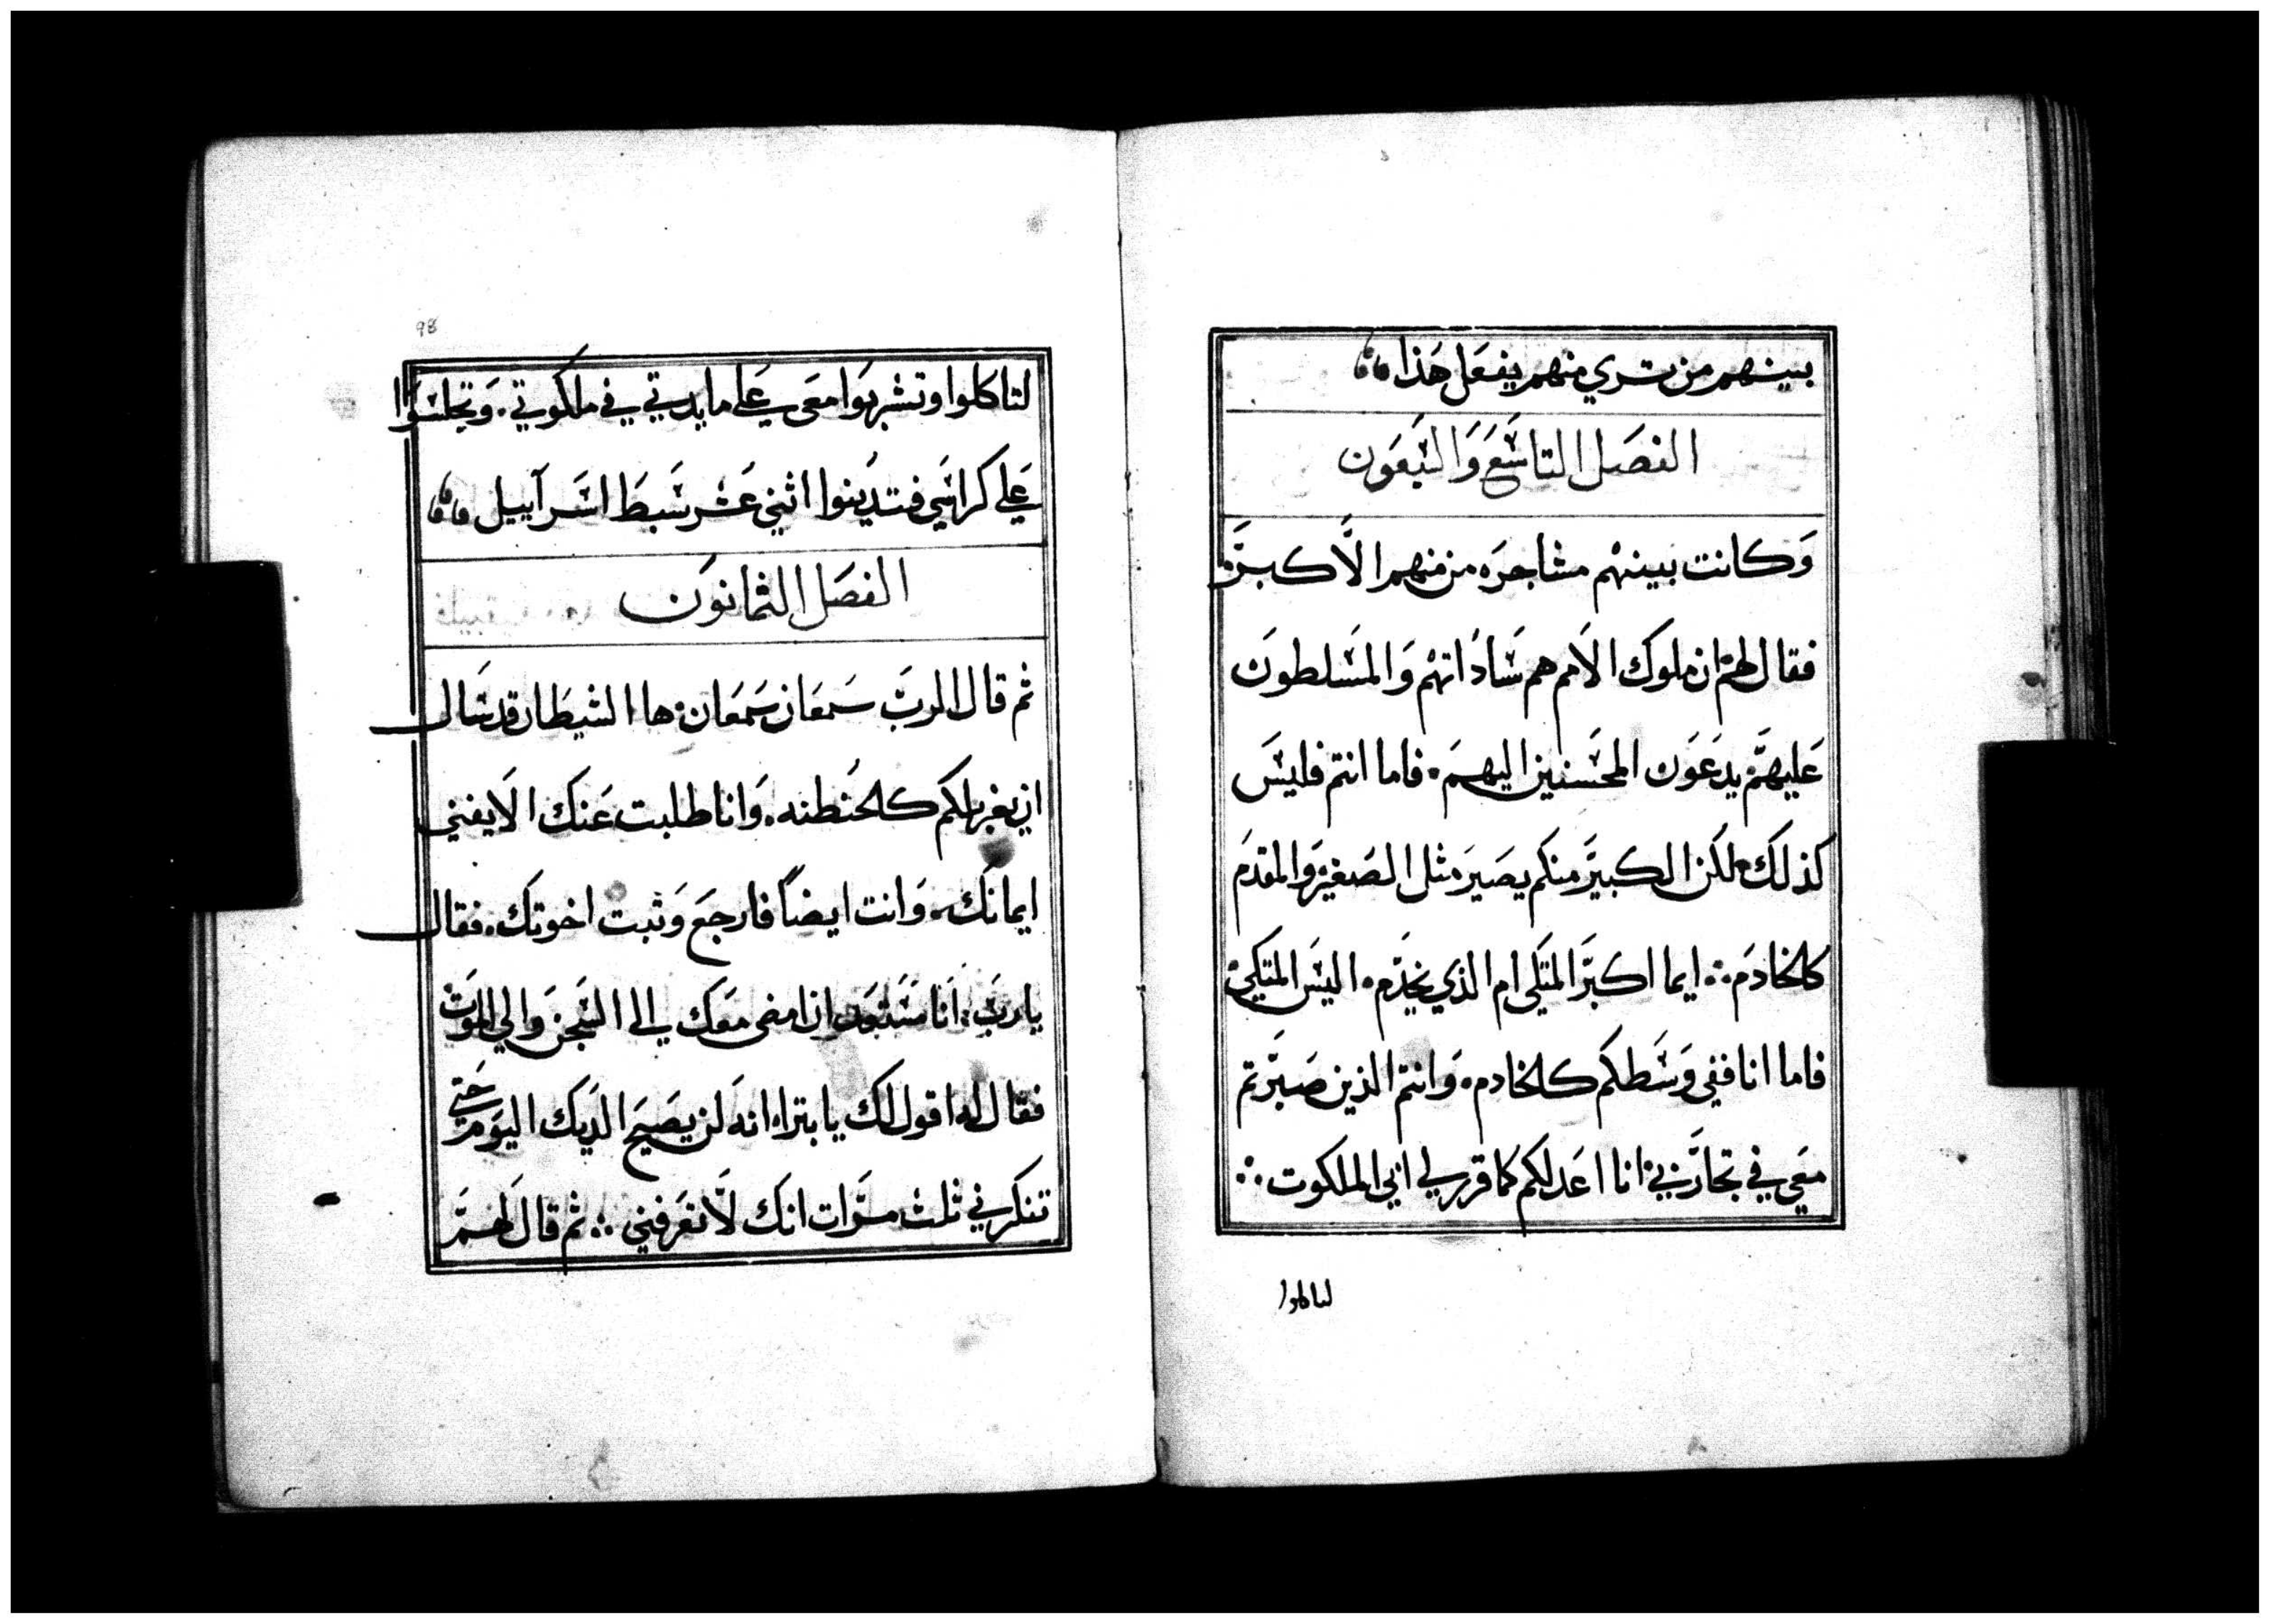 بينهم من تري منهم يفعل هذا
الفصل التاسع والسبعون
وكانت بينهم مشاجره من منهم الاكبر
فقال لهم ان ملوك الامم هم ساداتهم والمسلطون
عليهم يدعون المحسنين اليهم. فاما انتم فليس
كذلك لكن الكبير منكم يصير مثل الصغير والمقدم
كالخادم ∴ ايما اكبر المتكي ام الذي يخدم. اليس المتكي
فاما انا ففي وسطكم كالخادم. وانتم الذين صبرتم
معي في تجاربي انا اعد لكم كما قرر لي ابي الملكوت ∴
لتاكلوا
98
لتاكلوا وتشربوا معي علي مايدتي في ملكوتي. وتجلسوا
علي كراسي فتدينوا اثني عشر سبط اسرآييل
الفصل الثمانون
ثم قال الرب سمعان سمعان. ها الشيطان قد سال
ان يغربلكم كالحنطه. وانا طلبت عنك الا يفني
ايمانك. وانت ايضاً فارجع وثبت اخوتك. فقال
يا رب: انا مستعد ان امضي معك الي السجن والي الموت
فقال له اقول لك يا بتراه انه لن يصيح الديك اليوم حتي
تنكرني ثلث مرات انك لا تعرفني ∴ ثم قال لهم